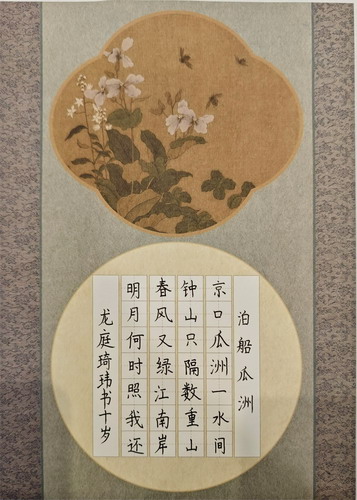 泊船瓜洲
京口瓜洲一水间
钟山只隔数重山
春风又绿江南岸
明月何时照我还
龙庭琦玮书十岁